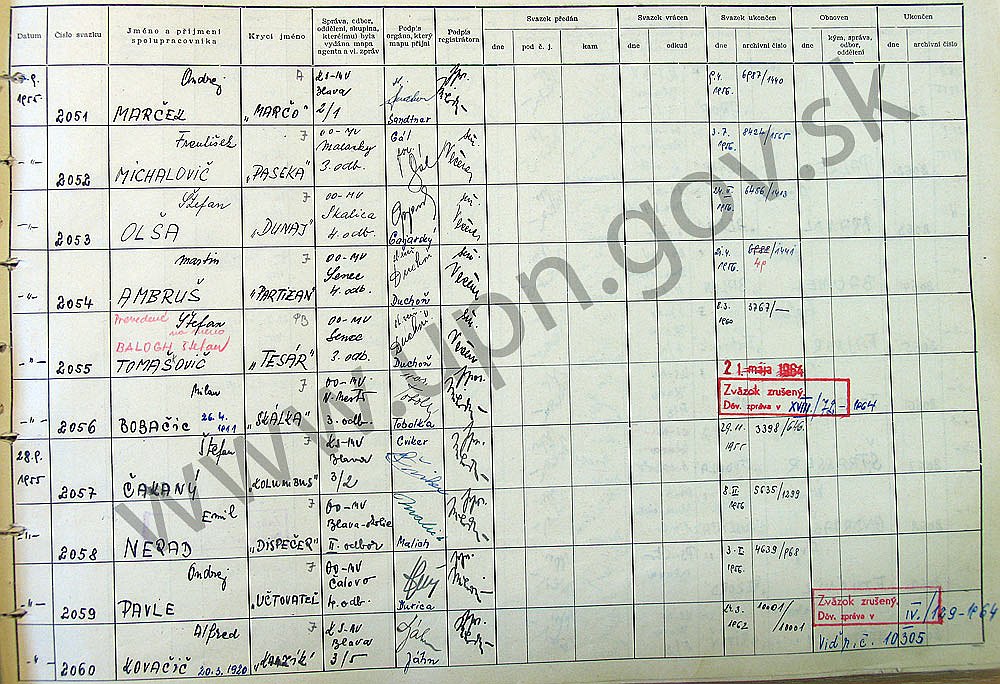 Datum
Číslo svazku
Jméno a příjmení spolupracovníka
Krycí jméno
Správa, odbor, oddělení, skupina, kterému(i) byla vydána mapa agenta a vl. zpráv
Podpis orgána, který mapu přijal
Podpis registrátora
Svazek předán
dne
pod č. j.
kam
Svazek vrácen
dne
odkud
Svazek ukončen
dne
archivní číslo
Obnoven
dne
kým, správa, odbor, oddělení
Ukončen
dne
archivní číslo
1955
2051
Ondrej
MARČEK
A
"MARČO"
KS-MV
Blava
2/1
Sandtner
9.4.
1956.
6987/1440
-"-
2052
František
MICHALOVIČ
7
"PASEKA"
OO-MV
Malacky
3. odb.
Gál
3.7.
1956.
8424/1565
-"-
2053
Štefan
OLŠA
7
"DUNAJ"
OO-MV
Skalica
4. odb.
1956.
6456/1413
-"-
2054
Martin
AMBRUŠ
7
"PARTIZÁN"
OO-MV
Senec
4. odb.
Duchoň
1956.
/1441
-"-
2055
Prevedené
na meno
BALOGH Štefan
Štefan
TOMAŠOVIČ
"TESÁR"
OO-MV
Senec
3. odb.
Duchoň
8.3.
1960
3767/—
21. mája 1964
Zväzok zrušený.
Dôv. zpráva v XVIII. - 1964
-"-
2056
Milan
BOBAČIC
26.4.
1911
7
"SKÁLKA"
OO-MV
N. Mesto
3. odb.
Tobolka
29.11.
1955
3398/646.
28.9.
1955
2057
Štefan
ČAKANÝ
7
"KOLUMBUS"
KS-MV
Blava
3/2
Cviker
8.II.
1956
5635/1299
-"-
2058
Emil
NERAD
7
"DISPEČER"
OO-MV
Blava-okolie
II. odbor
Malich
3.I.
1956.
4639/968
-"-
2059
Ondrej
PAVLE
7
"UČTOVATEĽ"
OO-MV
Čalovo
4. odb.
Ďurica
24.3.
1962
10001/
10001
Zväzok zrušený.
Dôv. zpráva v IV./129-1964
Viď p. č. 10305
-"-
2060
Alfred
KOVAČIČ 20.3.1920
7
KS-MV
Blava
3/5
www.upn.gov.sk